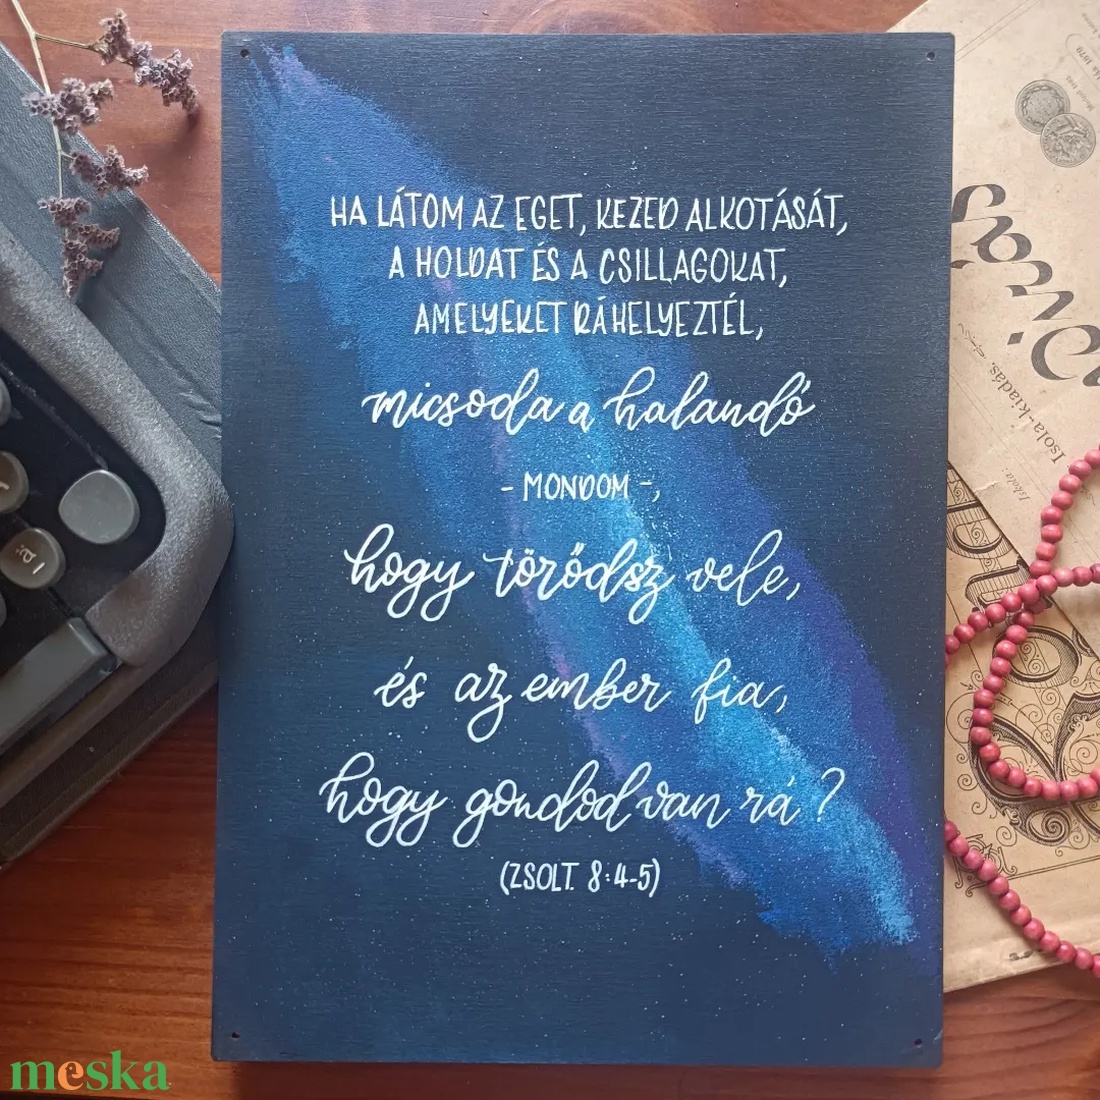 HA LÁTOM AZ EGET, KEZED ALKOTÁSÁT,
A HOLDAT ÉS A CSILLAGOKAT,
AMELYEKET RÁHELYEZTÉL,
micsoda a halandó
- MONDOM -,
hogy törődsz vele,
és az ember fia,
hogy gondod van rá?
(ZSOLT. 8:4-5)
Isola-kiadás.
Iskola:
meska